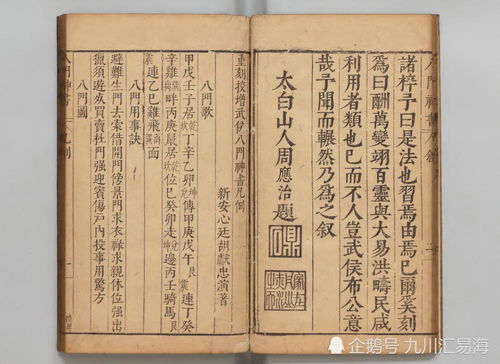 諸梓予曰是法也習焉由焉已爾奚刻
為曰酬萬變翊百靈與大易洪疇民咸
利用者類也已而不人豈武侯布公意
哉予聞而囅然乃為之叙
太白山人周應治題
重刻校增武侯八門神書凡例
新安心廷胡獻忠演著
八門歌
甲戊壬子居坎丁辛乙卯坤傳甲庚戊午艮連丁癸
辛雞畔丙庚鼠居坎位巳癸卯走坤邊丙壬騎馬艮
震連乙巳雞飛離面
八門用事訣
避難生門去索借開門傍景門求衣祿求親休位强出
獵須遊死買賣杜門强迎賓傷戶內投事用驚方
八門圖
八門神書 凡例 一
企鹅号 九川汇易海